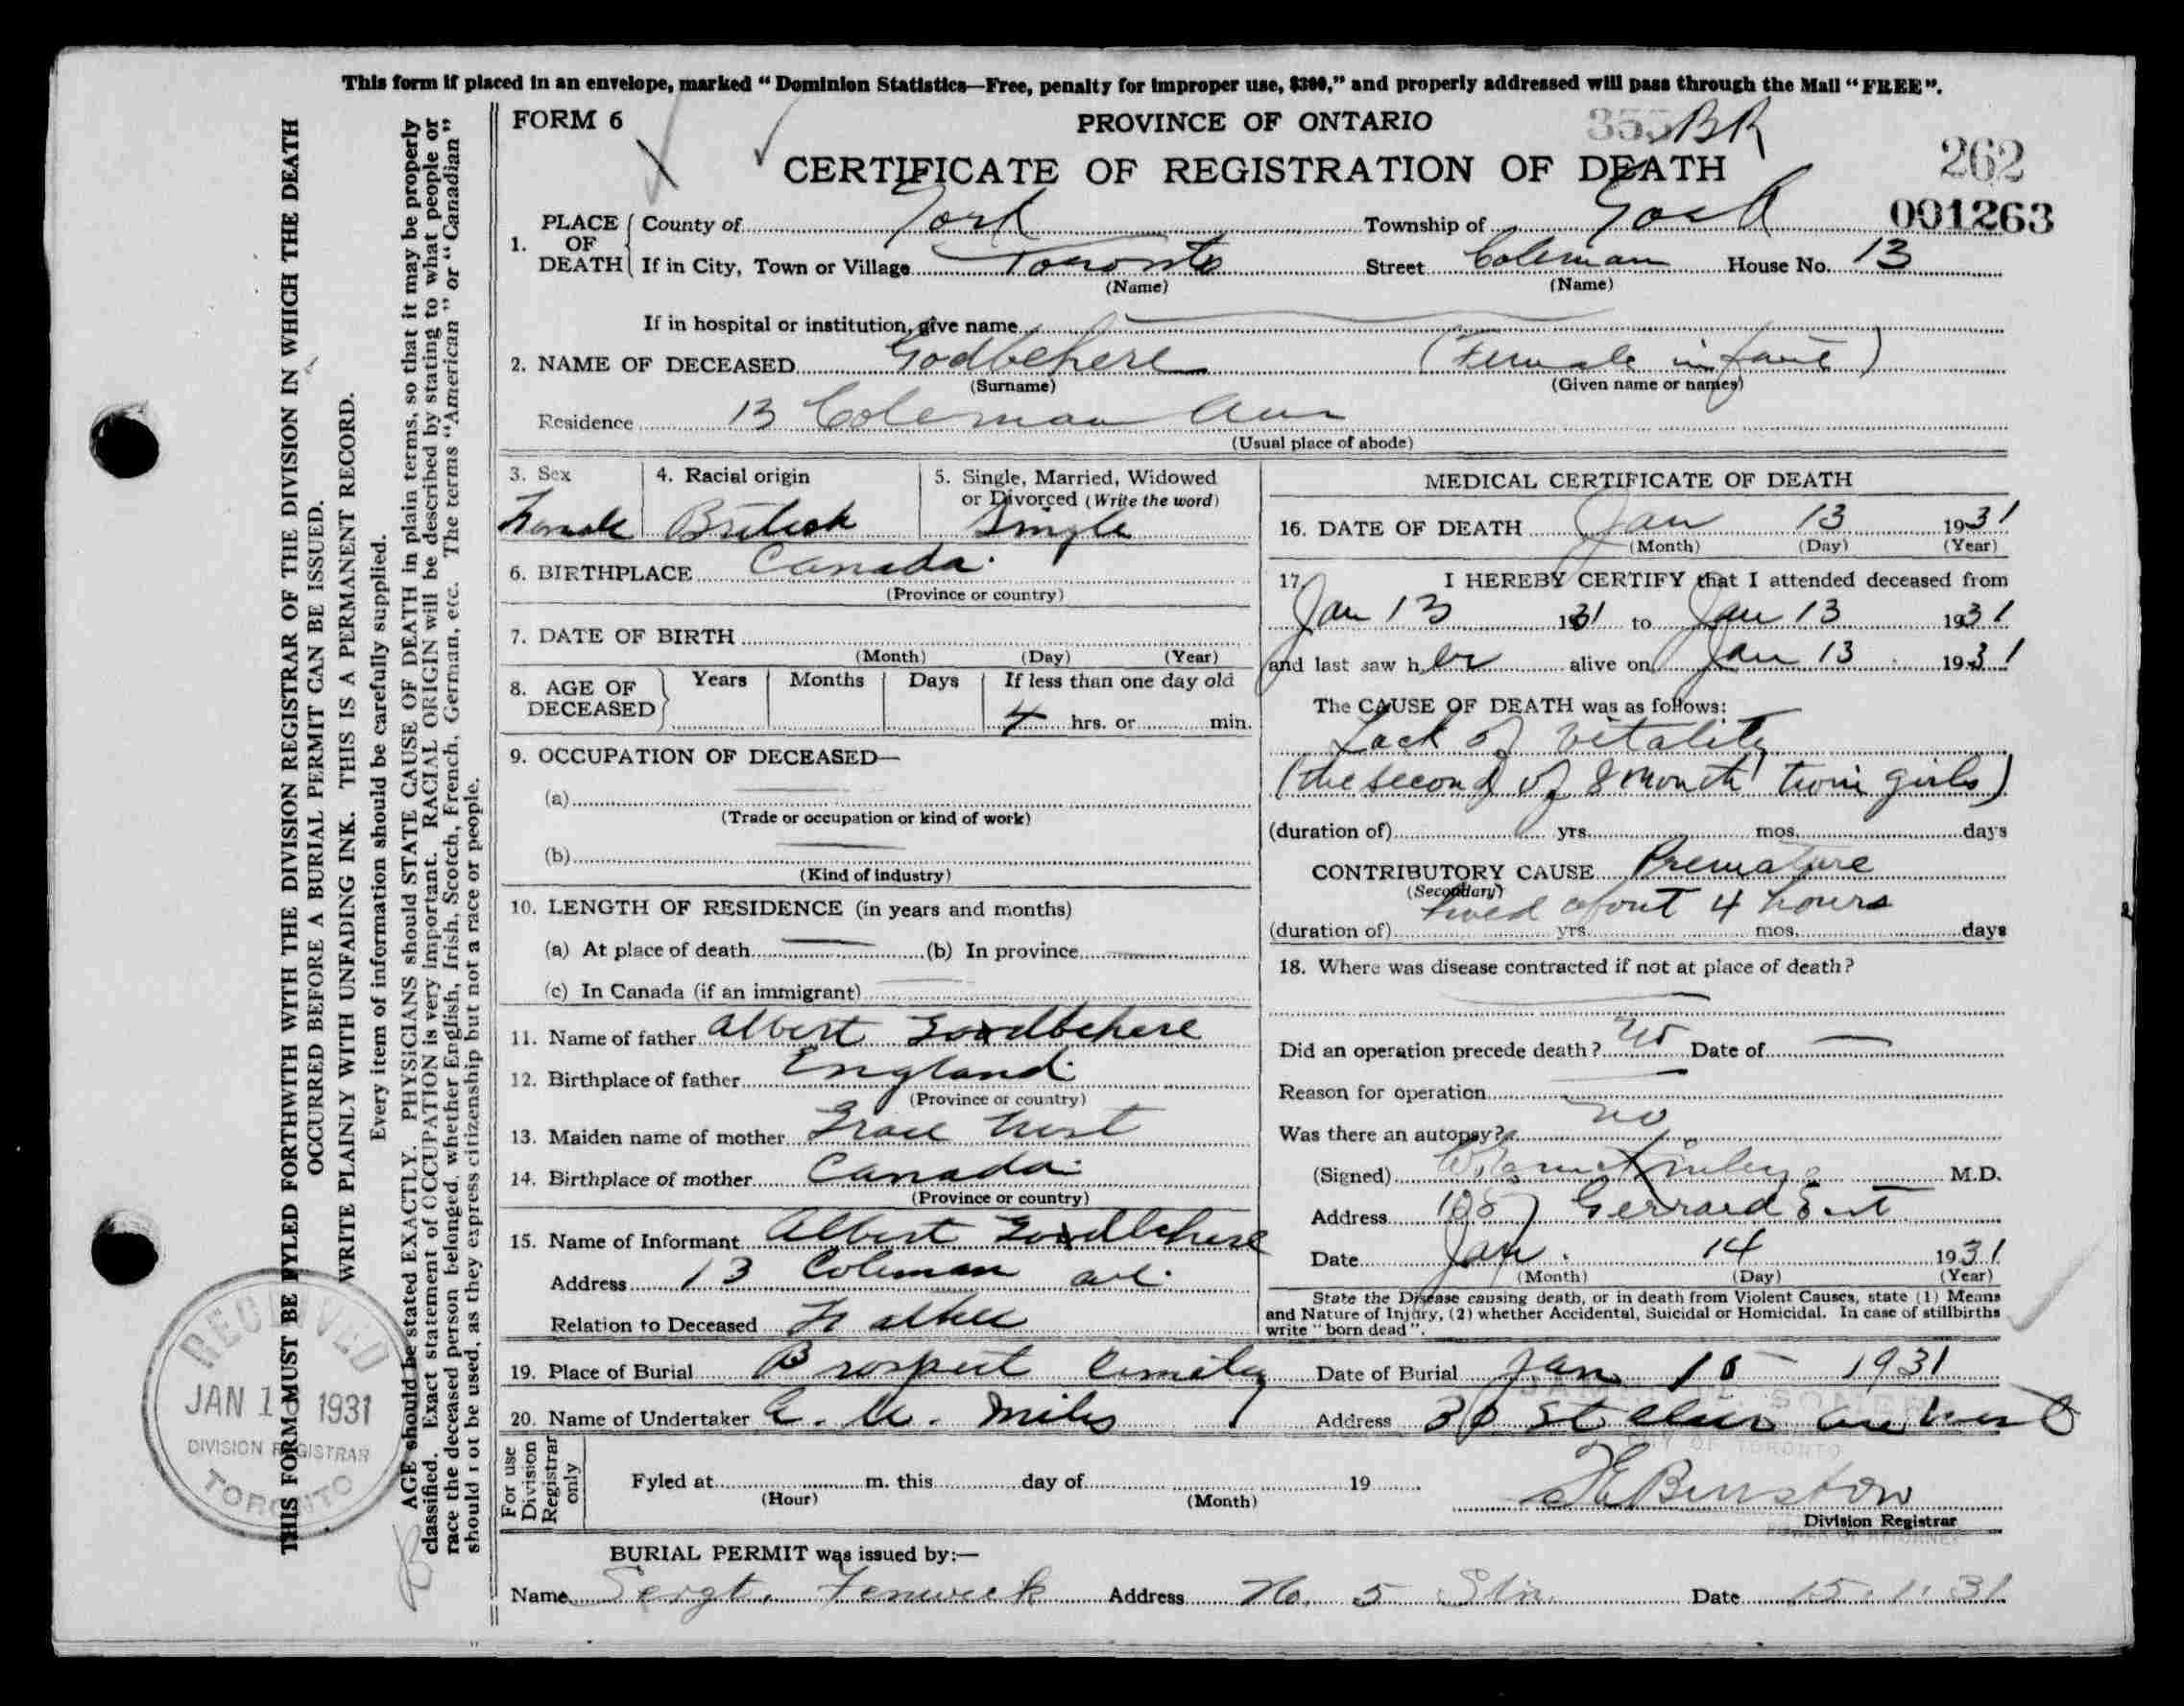 This form if placed in an envelope, marked "Dominion Statistics—Free, penalty for improper use, $300," and properly addressed will pass through the Mail "FREE".
FORM 6
PROVINCE OF ONTARIO
355 BR
CERTIFICATE OF REGISTRATION OF DEATH
262
001263
1. PLACE OF DEATH County of York Township of York
If in City, Town or Village Toronto Street Coleman House No. 13
(Name) (Name)
If in hospital or institution, give name
2. NAME OF DECEASED Godbehere (Female infant)
(Surname) (Given name or names)
Residence 13 Coleman Ave
(Usual place of abode)
3. Sex 4. Racial origin 5. Single, Married, Widowed
or Divorced (Write the word)
Female British Single
6. BIRTHPLACE Canada
(Province or country)
7. DATE OF BIRTH
(Month) (Day) (Year)
8. AGE OF DECEASED Years Months Days If less than one day old
4 hrs. or min.
9. OCCUPATION OF DECEASED—
(a)
(Trade or occupation or kind of work)
(b)
(Kind of industry)
10. LENGTH OF RESIDENCE (in years and months)
(a) At place of death (b) In province
(c) In Canada (if an immigrant)
11. Name of father Albert Godbehere
12. Birthplace of father England
(Province or country)
13. Maiden name of mother Grace
14. Birthplace of mother Canada
(Province or country)
15. Name of Informant Albert Godbehere
Address 13 Coleman ave.
Relation to Deceased Father
MEDICAL CERTIFICATE OF DEATH
16. DATE OF DEATH Jan 13 1931
(Month) (Day) (Year)
17. I HEREBY CERTIFY that I attended deceased from
Jan 13 1931 to Jan 13 1931
and last saw her alive on Jan 13 1931
The CAUSE OF DEATH was as follows:
Lack of vitality
(the second of 8 month twin girls)
(duration of) yrs. mos. days
CONTRIBUTORY CAUSE Premature
(Secondary)
lived about 4 hours
(duration of) yrs. mos. days
18. Where was disease contracted if not at place of death?
Did an operation precede death? no Date of
Reason for operation
Was there an autopsy? no
(Signed) M.D.
Address Gerrard East
Date Jan. 14 1931
(Month) (Day) (Year)
State the Disease causing death, or in death from Violent Causes, state (1) Means
and Nature of Injury, (2) whether Accidental, Suicidal or Homicidal. In case of stillbirths
write "born dead".
19. Place of Burial Prospect Cemetery Date of Burial Jan 15 1931
20. Name of Undertaker Miles Address 30 St Clair ave West
For use Division Registrar only
Fyled at m. this day of 19
(Hour) (Month)
Division Registrar
BURIAL PERMIT was issued by:—
Name Sergt. Fenwick Address No. 5 Stn. Date 15.1.31
THIS FORM MUST BE FYLED FORTHWITH WITH THE DIVISION REGISTRAR OF THE DIVISION IN WHICH THE DEATH
OCCURRED BEFORE A BURIAL PERMIT CAN BE ISSUED.
WRITE PLAINLY WITH UNFADING INK. THIS IS A PERMANENT RECORD.
Every item of information should be carefully supplied.
AGE should be stated EXACTLY. PHYSICIANS should STATE CAUSE OF DEATH in plain terms, so that it may be properly
classified. Exact statement of OCCUPATION is very important. RACIAL ORIGIN will be described by stating to what people or
race the deceased person belonged, whether English, Irish, Scotch, French, German, etc. The terms "American" or "Canadian"
should not be used, as they express citizenship but not a race or people.
RECEIVED
JAN 1 1931
DIVISION REGISTRAR
TORONTO